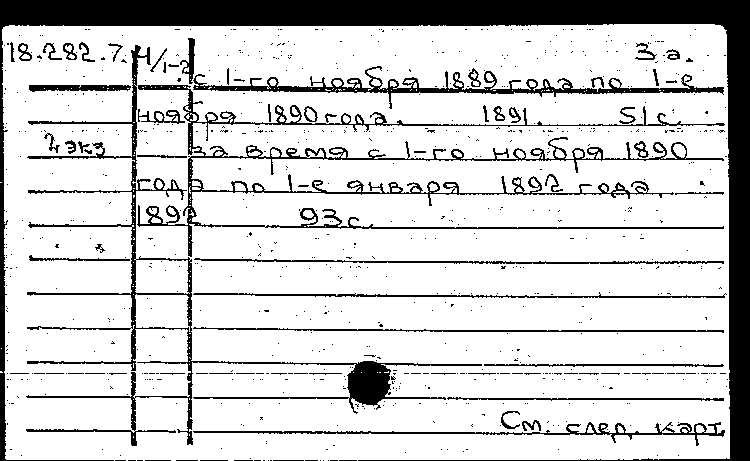 18.282.7. Н/1-2 3 а.
с 1-го ноября 1889 года по 1-е
ноября 1890 года. 1891. 51 с.
2 экз за время с 1-го ноября 1890
года по 1-е января 1892 года.
1892 93 с.
См. след. карт.